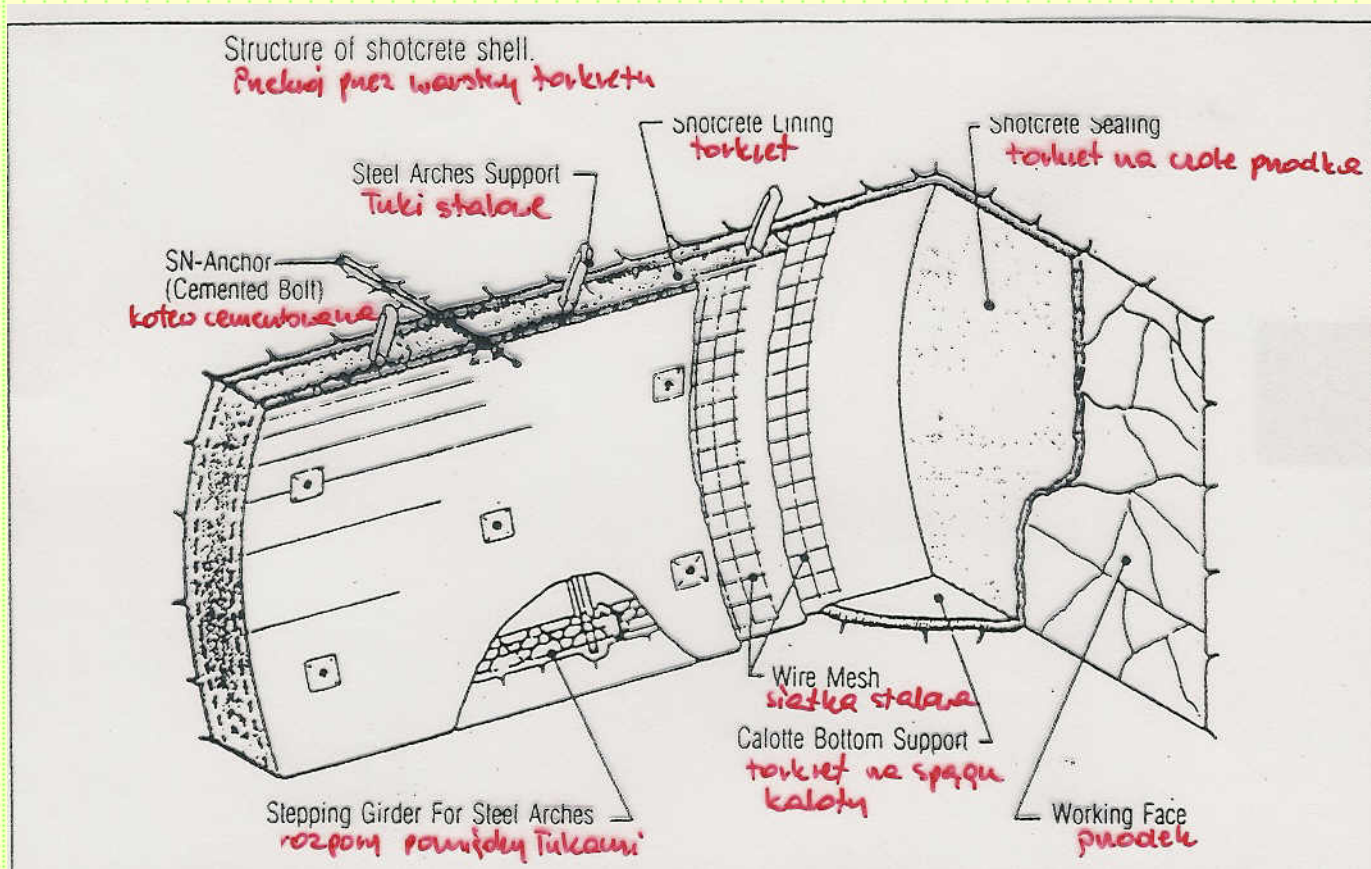 Structure of shotcrete shell.
Przekrój przez warstwy torkretu
Shotcrete Lining
torkret
Shotcrete Sealing
torkret na czole przodka
Steel Arches Support
Łuki stalowe
SN-Anchor
(Cemented Bolt)
kotew cementowana
Wire Mesh
siatka stalowa
Calotte Bottom Support
torkret na spągu
kaloty
Stepping Girder For Steel Arches
rozpory pomiędzy Łukami
Working Face
przodek